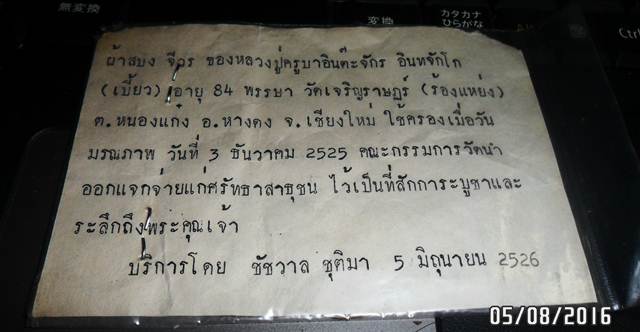 無変換
変換
カタカナ
ひらがな
Ctrl
ผ้าสบง จีวร ของหลวงปู่ครูบาอินต๊ะจักร อินทจักโก
(เบี้ยว) อายุ 84 พรรษา วัดเจริญราษฎร์ (ร้องแหย่ง)
ต.หนองแก๋ง อ.หางดง จ.เชียงใหม่ ใช้ครองเมื่อวัน
มรณภาพ วันที่ 3 ธันวาคม 2525 คณะกรรมการวัดนำ
ออกแจกจ่ายแก่ศรัทธาสาธุชน ไว้เป็นที่สักการะบูชาและ
ระลึกถึงพระคุณเจ้า
บริการโดย ชัชวาล ชุติมา 5 มิถุนายน 2526
05/08/2016